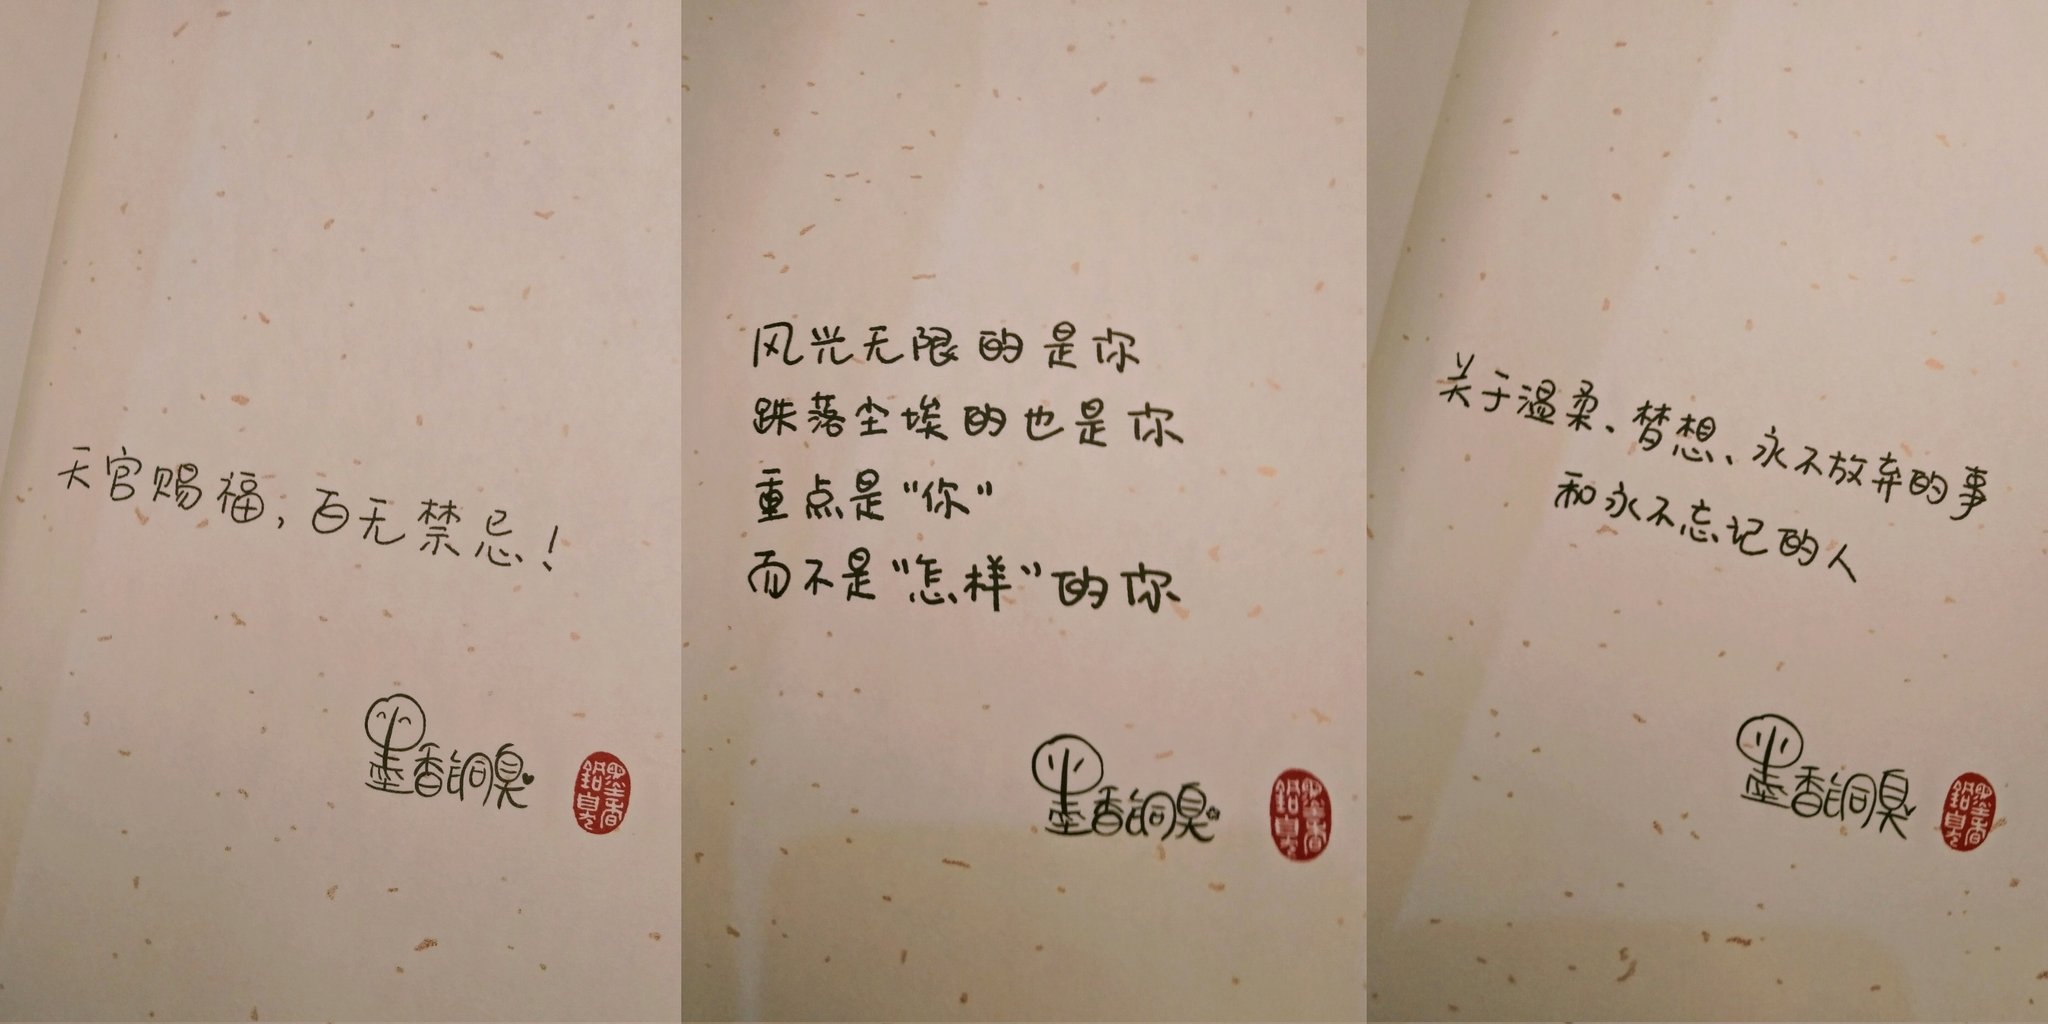 天官赐福，百无禁忌！
墨香铜臭
墨香
铜臭
风光无限的是你
跌落尘埃的也是你
重点是“你”
而不是“怎样”的你
墨香铜臭
墨香
铜臭
关于温柔、梦想、永不放弃的事
和永不忘记的人
墨香铜臭
墨香
铜臭